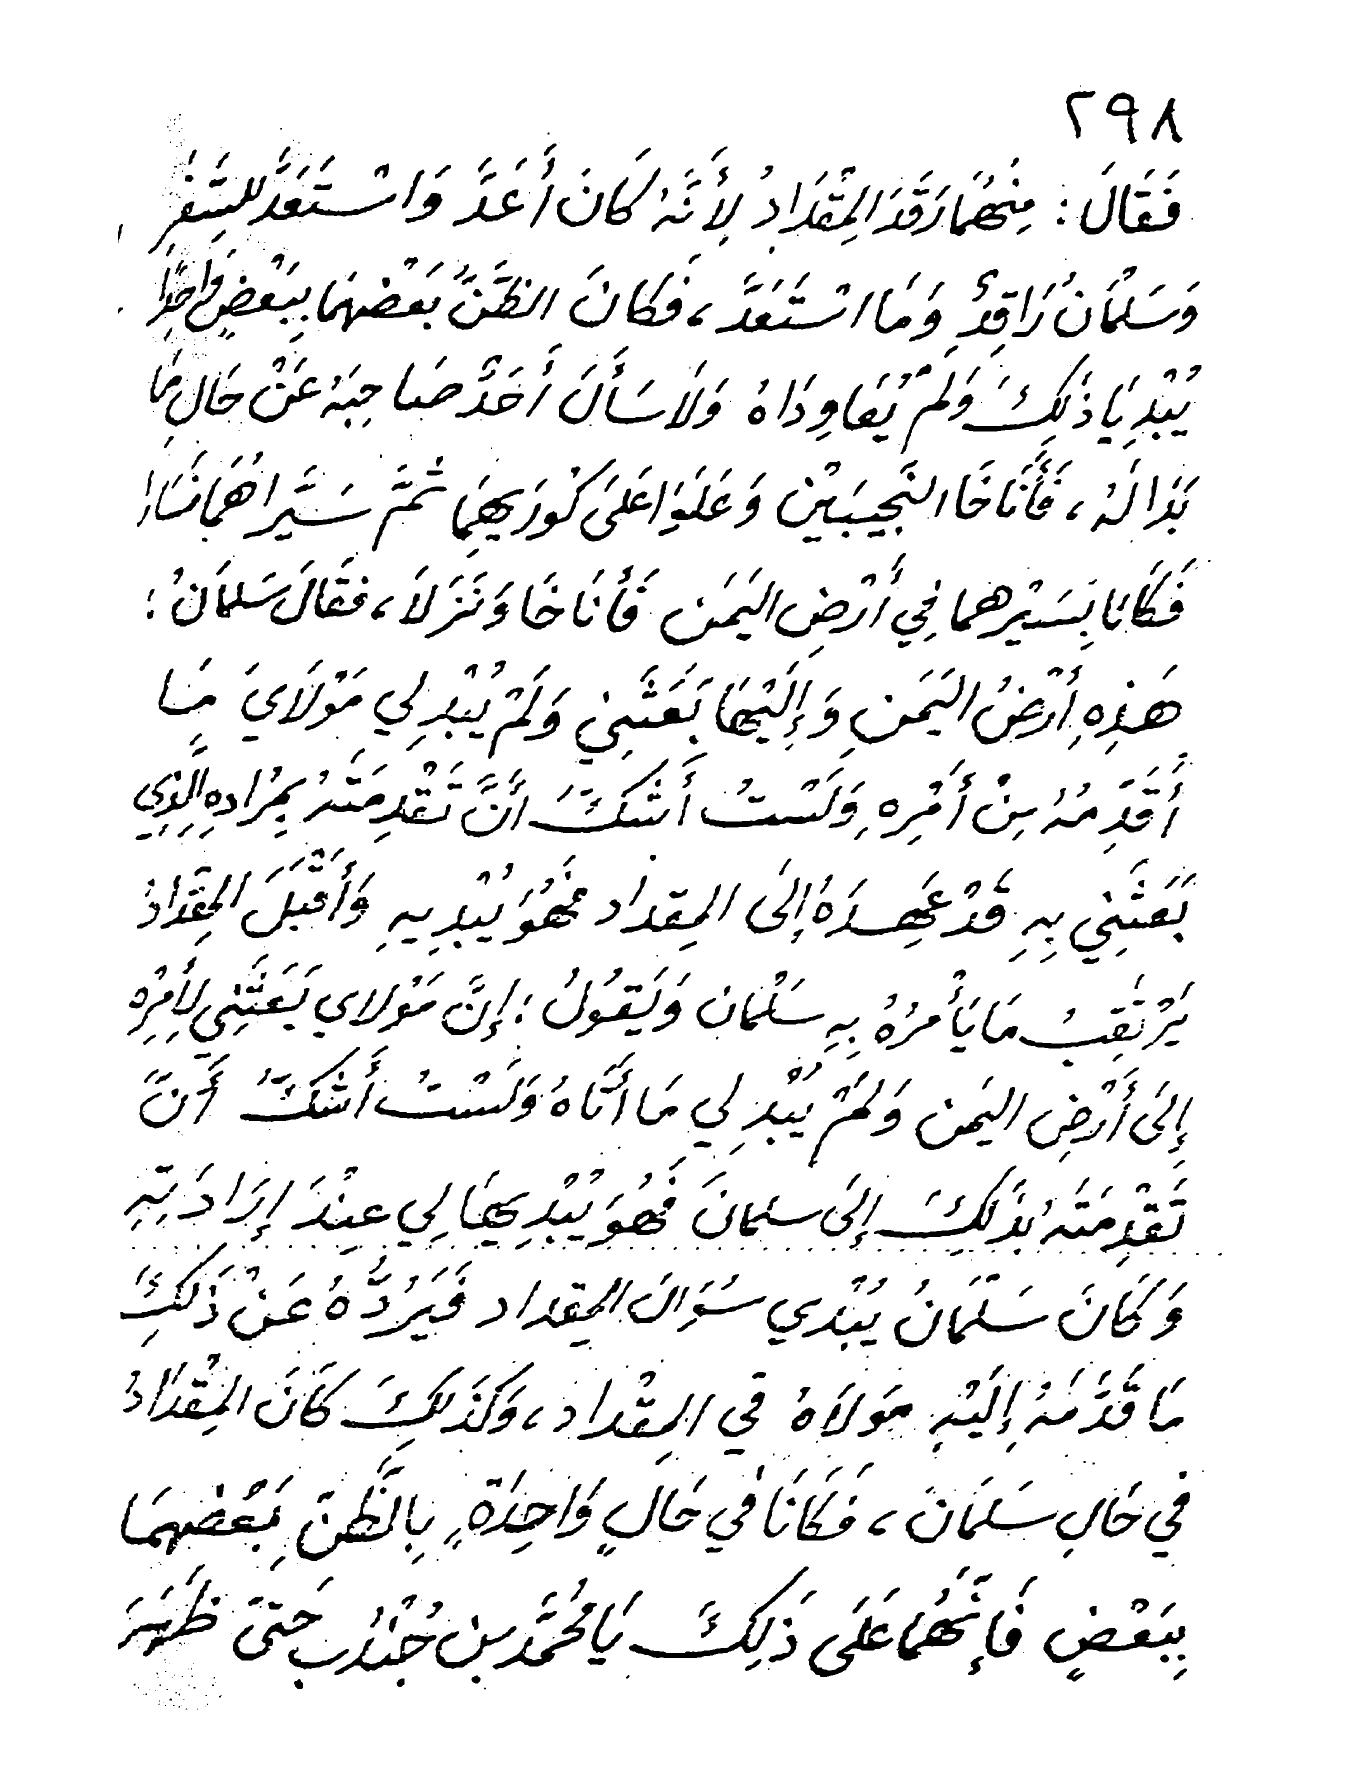 ٢٩٨
فَقَالَ: مِنْهُمَا رَقَدَ المِقْدَادُ لِأَنَّهُ كَانَ أَعَدَّ وَاسْتَعَدَّ لِلسَّفَرِ
وَسَلْمَانُ رَاقِدٌ وَمَا اسْتَعَدَّ، فَكَانَ الظَّنُّ بَعْضهمَا بِبَعْضٍ وَاحِدًا
يُبْدِيَا ذَلِكَ وَلَمْ يُفَاوِدَاهُ وَلَا سَأَلَ أَحَدٌ صَاحِبَهُ عَنْ حَالِ مَا
بَدَا لَهُ، فَأَنَاخَا النَّجِيبَيْنِ وَعَلَوَا عَلَى كُورَيهِمَا ثُمَّ سَيَّرَاهُمَا فَسَارَا
فَكَانَا بِسَيْرهما فِي أَرْضِ اليَمَن فَأَنَاخَا وَنَزَلَا، فقَالَ سَلمَانُ:
هَذِهِ أَرْضُ اليَمَنِ وَإِلَيْهَا بَعَثَنِي وَلَمْ يُبْدِ لِي مَوْلَايَ مَا
أُقَدِّمُهُ مِنْ أَمْرِهِ وَلَسْتُ أَشُكَّ أَنَّ تَقْدِمَتَهُ بِمُرَادِهِ الَّذِي
بَعَثَنِي بِهِ قَدْ عَهِدَهُ إِلَى المِقدَاد فَهُوَ يُبْدِيهِ وَأَقْبَلَ المِقْدَادُ
يَرْتَقِبُ مَا يَأْمرُهُ بِهِ سَلْمان وَيَقُولُ: إِنَّ مَوْلاي بَعَثَنِي لِأَمْرِهِ
إِلَى أَرْضِ اليَمن وَلَمْ يُبْدِ لِي مَا أَتَاهُ وَلَسْتُ أَشُكُّ أَنَّ
تَقْدِمَتَهُ بِذَلِكَ إِلَى سلمانَ فَهُوَ يُبْدِيهَا لِي عِنْدَ إِرَادَتِهِ
وَكَانَ سَلْمَانُ يُبْدِي سُؤَالَ المِقداد فَيَرُدُّهُ عَنْ ذَلِكَ
مَا قَدَّمَهُ إِلَيْهِ مَولَاهُ فِي المِقْداد، وَكَذَلِكَ كَانَ المِقْدَادُ
فِي حَالِ سَلمَانَ، فَكَانَا فِي حَالٍ وَاحِدَةٍ بِالظَّنِّ بَعْضهمَا
بِبَعْضٍ فَإِنَّهُمَا عَلَى ذَلِكَ يَا مُحَمَّد بن جُنْدُب حَتَّى ظَهَرَ